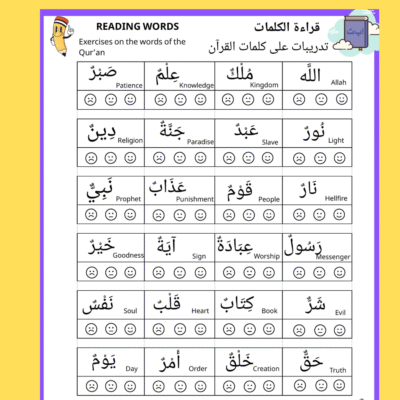 READING WORDS
قراءة الكلمات
Exercises on the words of the
Qur'an
تدريبات على كلمات القرآن
اللَّه Allah مُلْكٌ Kingdom عِلْمٌ Knowledge صَبْرٌ Patience
نُورٌ Light عَبْدٌ Slave جَنَّةٌ Paradise دِينٌ Religion
نَارٌ Hellfire قَوْمٌ People عَذَابٌ Punishment نَبِيٌّ Prophet
رَسُولٌ Messenger عِبَادَةٌ Worship آيَةٌ Sign خَيْرٌ Goodness
شَرٌّ Evil كِتَابٌ Book قَلْبٌ Heart نَفْسٌ Soul
حَقٌّ Truth خَلْقٌ Creation أمْرٌ Order يَوْمٌ Day